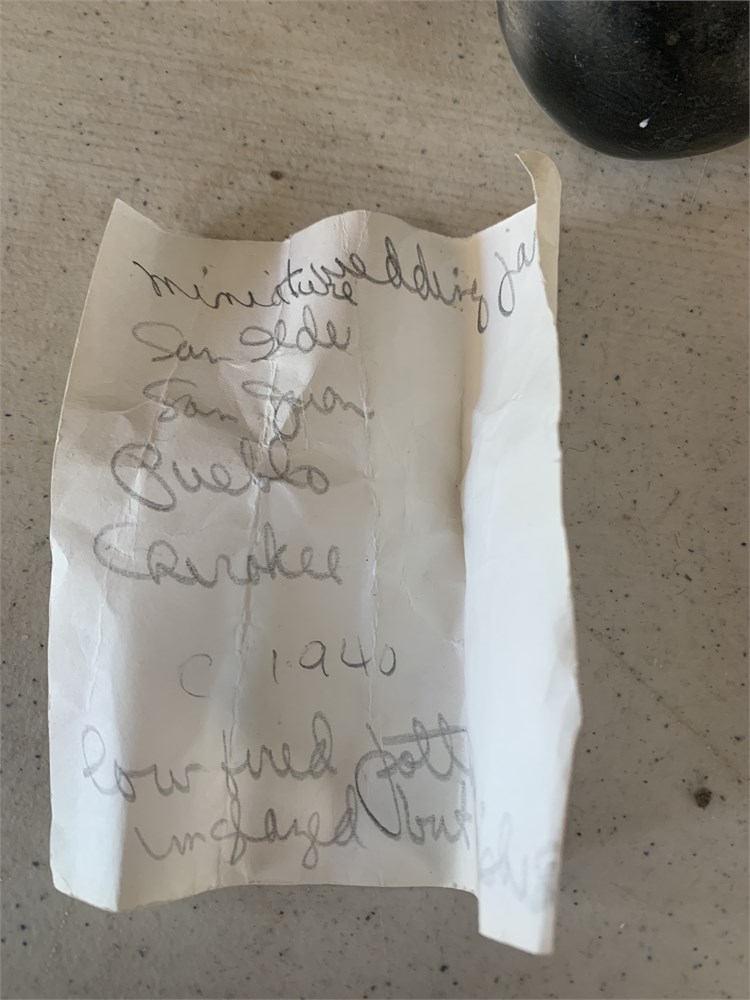 miniature wedding ja
San Ilde
San Juan
Pueblo
Cherokee
c 1940
low fired pott
unglazed but